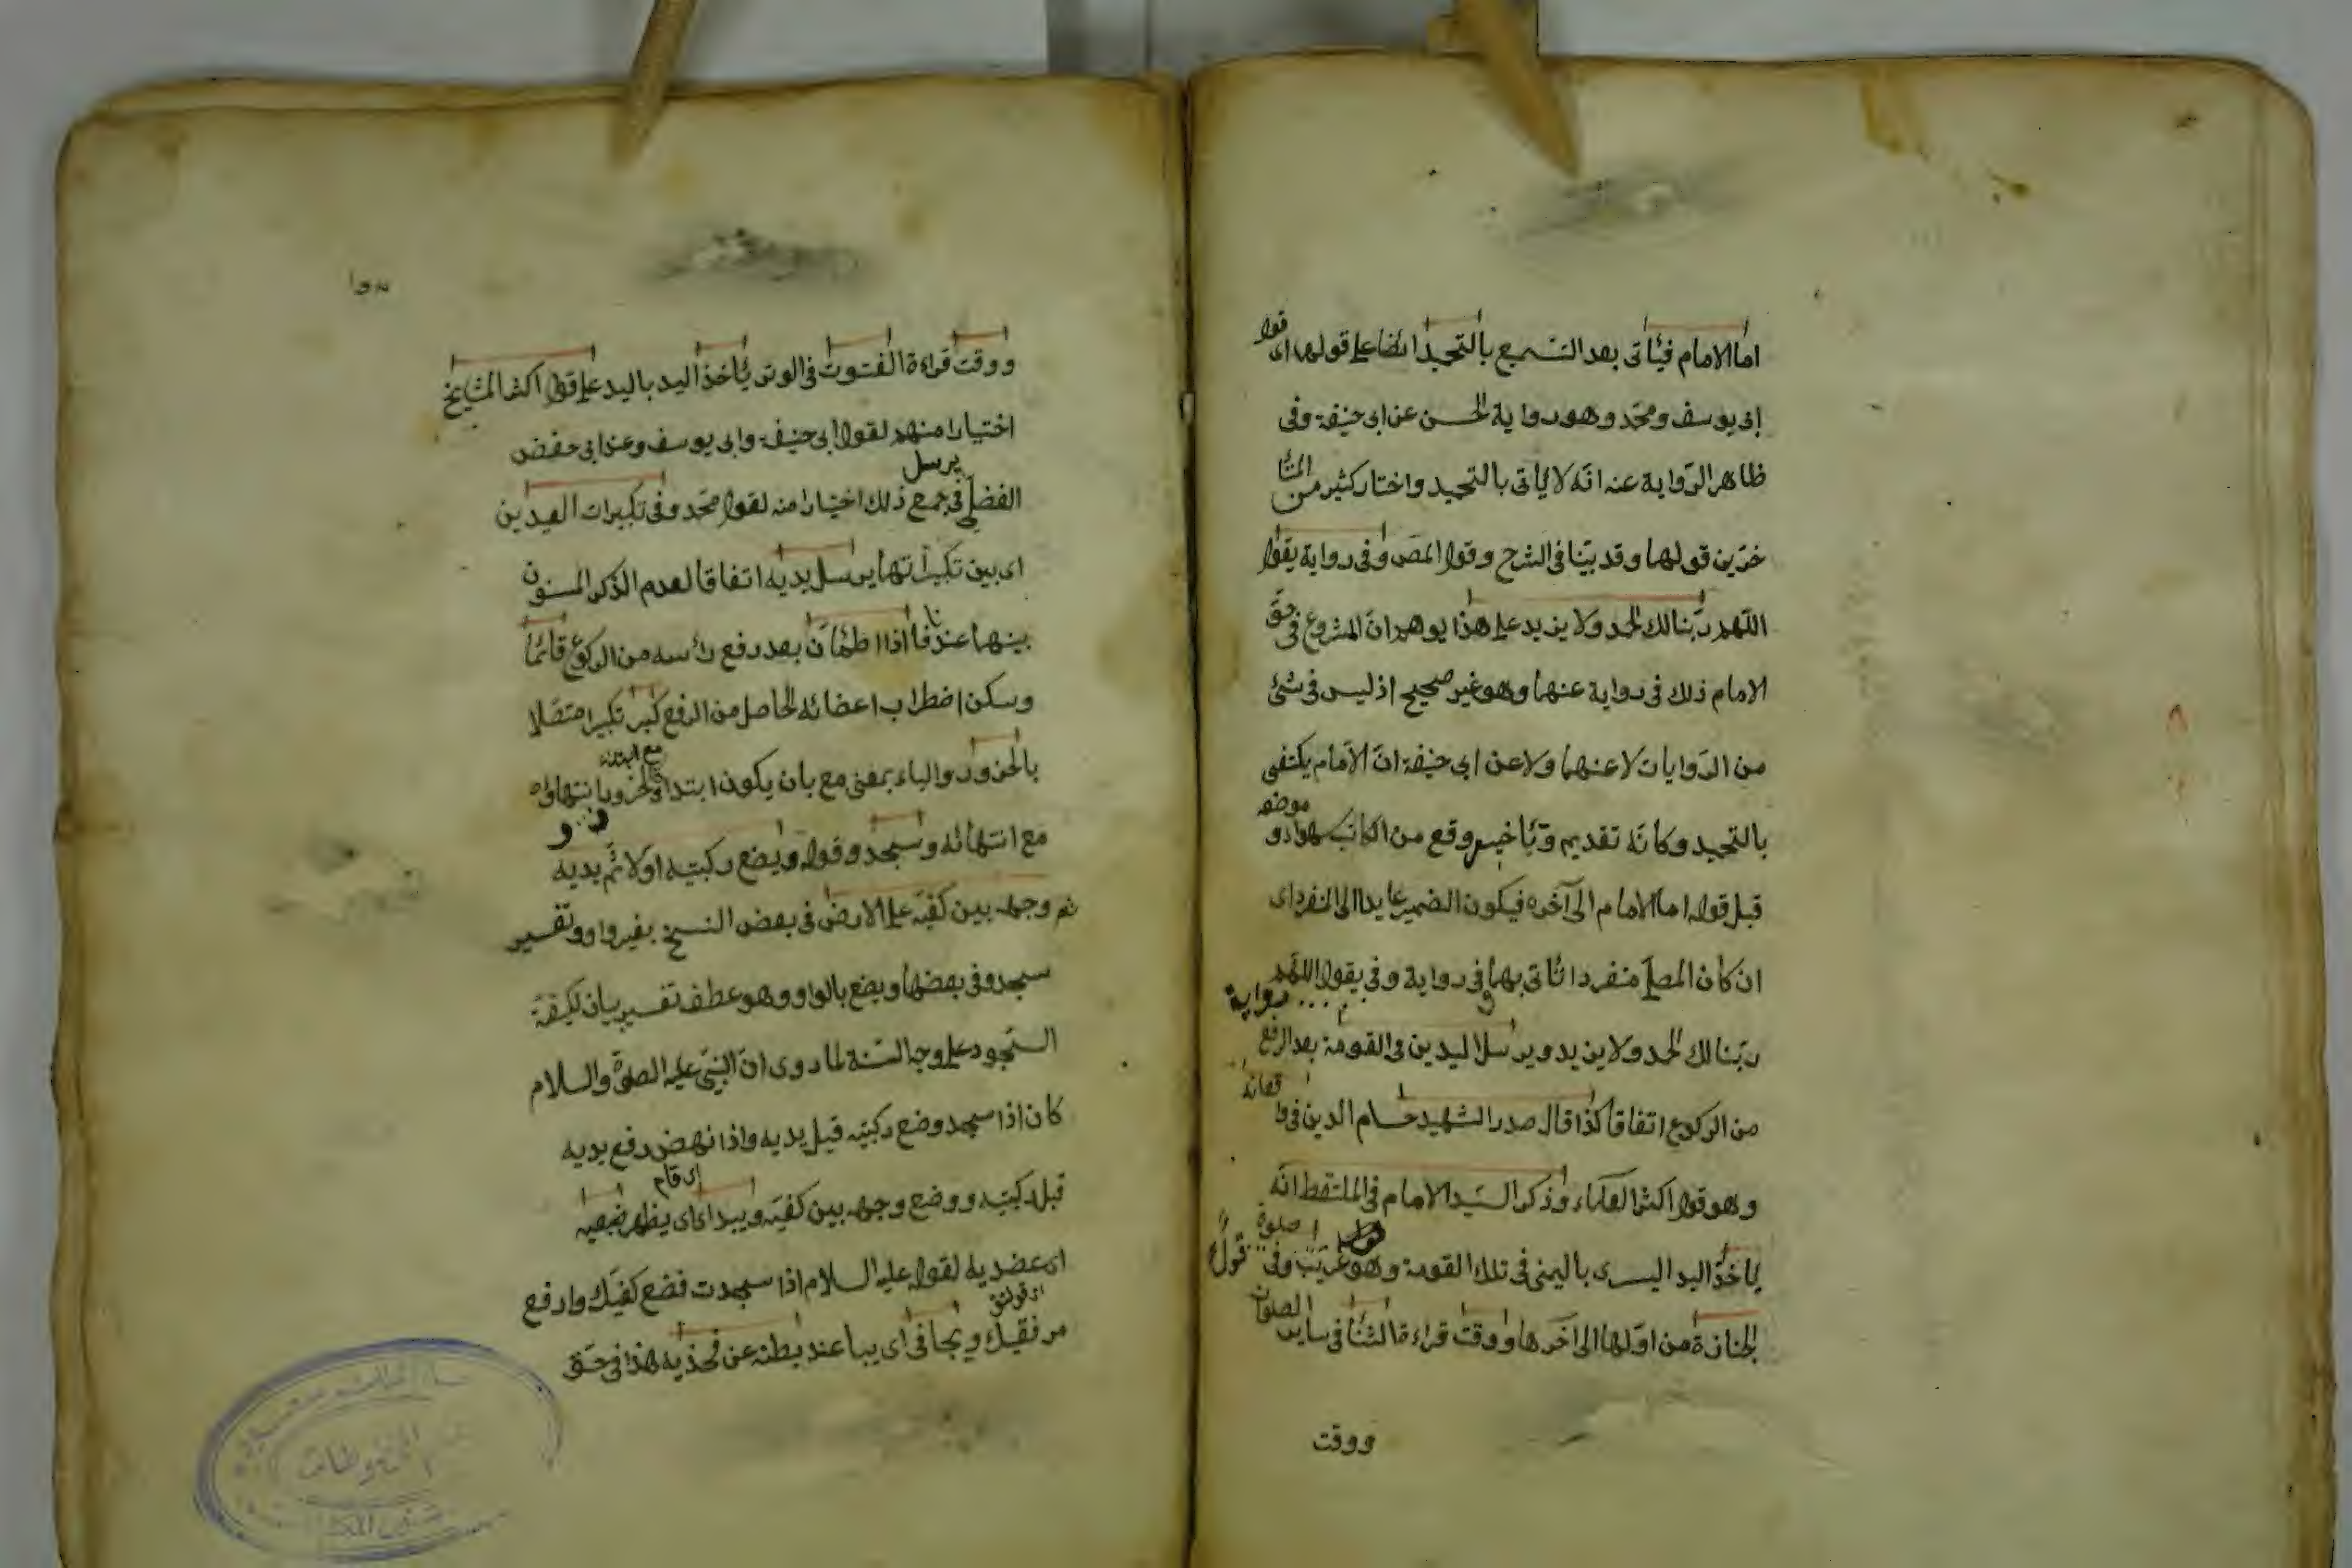 اما الامام فيأتى بعد التسميع بالتحميد ايضا على قولهما اى قول
ابى يوسف ومحمد وهو رواية الحسن عن ابى حنيفة وفى
ظاهر الرواية عنه انه لا يأتى بالتحميد واختار كثير من المتأ
خرين قولهما وقد بينا فى الشرح وقول المص وفى رواية يقول
اللهم ربنا لك الحمد ولا يزيد على هذا يوهم ان المشروع فى حق
الامام ذلك فى رواية عنهما وهو غير صحيح اذ ليس فى شئ
من الروايات لا عنهما ولا عن ابى حنيفة ان الامام يكتفى
بالتحميد وكانه تقديم وتأخير وقع من الكاتب سهوا و موضعه
قبل قوله اما الامام الى آخره فيكون الضمير عايدا الى المنفرد اى
ان كان المصلى منفردا يأتى بهما فى رواية وفى رواية يقول اللهم
ربنا لك الحمد ولا يزيد ويرسل اليدين فى القومة بعد الرفع
من الركوع اتفاقا كذا قال صدر الشهيد حسام الدين فى وا قعاته
وهو قول اكثر العلماء وذكر السيد الامام فى الملتقط انه
يأخذ اليد اليسرى باليمنى فى تلك القومة وهو قول غريب وفى صلوة
الجنازة من اولها الى آخرها ووقت قراءة الثنا فى ساير الصلوات
ووقت
ووقت قراءة القنوت فى الوتر يأخذ اليد باليد على قول اكثر المشايخ
اختيارا منهم لقول ابى حنيفة وابى يوسف وعند ابى حفص
الفضلى يرسل فى جميع ذلك اختيارا منه لقول محمد وفى تكبيرات العيدين
اى بين تكبيراتها يرسل يديه اتفاقا لعدم الذكر المسنون
بينهما عندنا فاذا اطمأن بعد رفع رأسه من الركوع قائما
وسكن اضطراب اعضائه الحاصل من الرفع كبر تكبيرا متصلا
بالخرور والباء بمعنى مع بان يكون ابتداؤه مع ابتداء الخرور وانتهاؤه
مع انتهائه وسجد وقوله ويضع ركبتيه اولا ثم يديه
ثم وجهه بين كفيه على الارض فى بعض النسخ بغير واو وتفسير
سجد وفى بعضها ويضع بالواو وهو عطف تفسير بيان لكيفية
السجود على وجه السنة لما روى ان النبى عليه الصلوة والسلام
كان اذا سجد وضع ركبتيه قبل يديه واذا نهض رفع يديه
اى قام
قبل ركبتيه ووضع وجهه بين كفيه ويبدى اى يظهر ضبعيه
اى عضديه لقوله عليه السلام اذا سجدت فضع كفيك وارفع
مرفقيك ويجافى اى يباعد بطنه عن فخذيه هذا فى حق